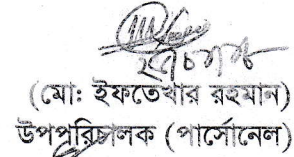 (মো: ইফতেখার রহমান)
উপপরিচালক (পার্সোনেল)